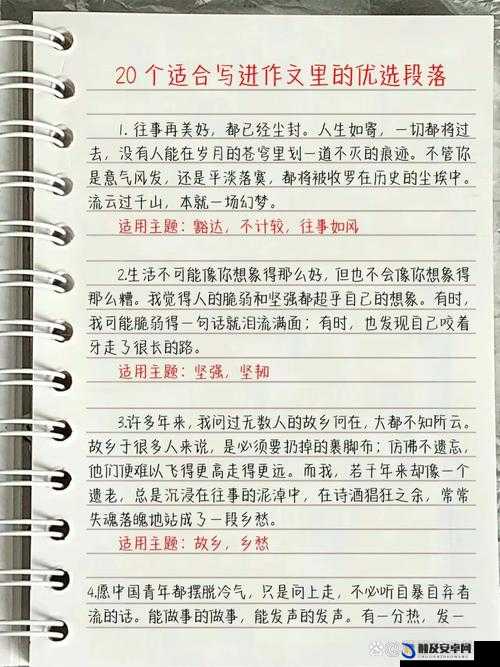 20个适合写进作文里的优选段落
1. 往事再美好，都已经尘封。人生如寄，一切都将过
去，没有人能在岁月的苍穹里划一道不灭的痕迹。不管你
是意气风发，还是平淡落寞，都将被收罗在历史的尘埃中。
流云过千山，本就一场幻梦。
适用主题：豁达，不计较，往事如风
2.生活不可能像你想象得那么好，但也不会像你想象得
那么糟。我觉得人的脆弱和坚强都超乎自己的想象。有时，
我可能脆弱得一句话就泪流满面；有时，也发现自己咬着
牙走了很长的路。
适用主题：坚强，坚韧
3.许多年来，我问过无数人的故乡何在，大都不知所云。
故乡于很多人来说，是必须要扔掉的裹脚布；仿佛不遗忘，
他们便难以飞得更高走得更远。而我，若干年来却像一个
遗老，总是沉浸在往事的泥淖中，在诗酒猖狂之余，常常
失魂落魄地站成了一段乡愁。
适用主题：故乡，乡愁
4.愿中国青年都摆脱冷气，只是向上走，不必听自暴自弃者
流的话。能做事的做事，能发声的发声。有一分热，发一
触及安卓网